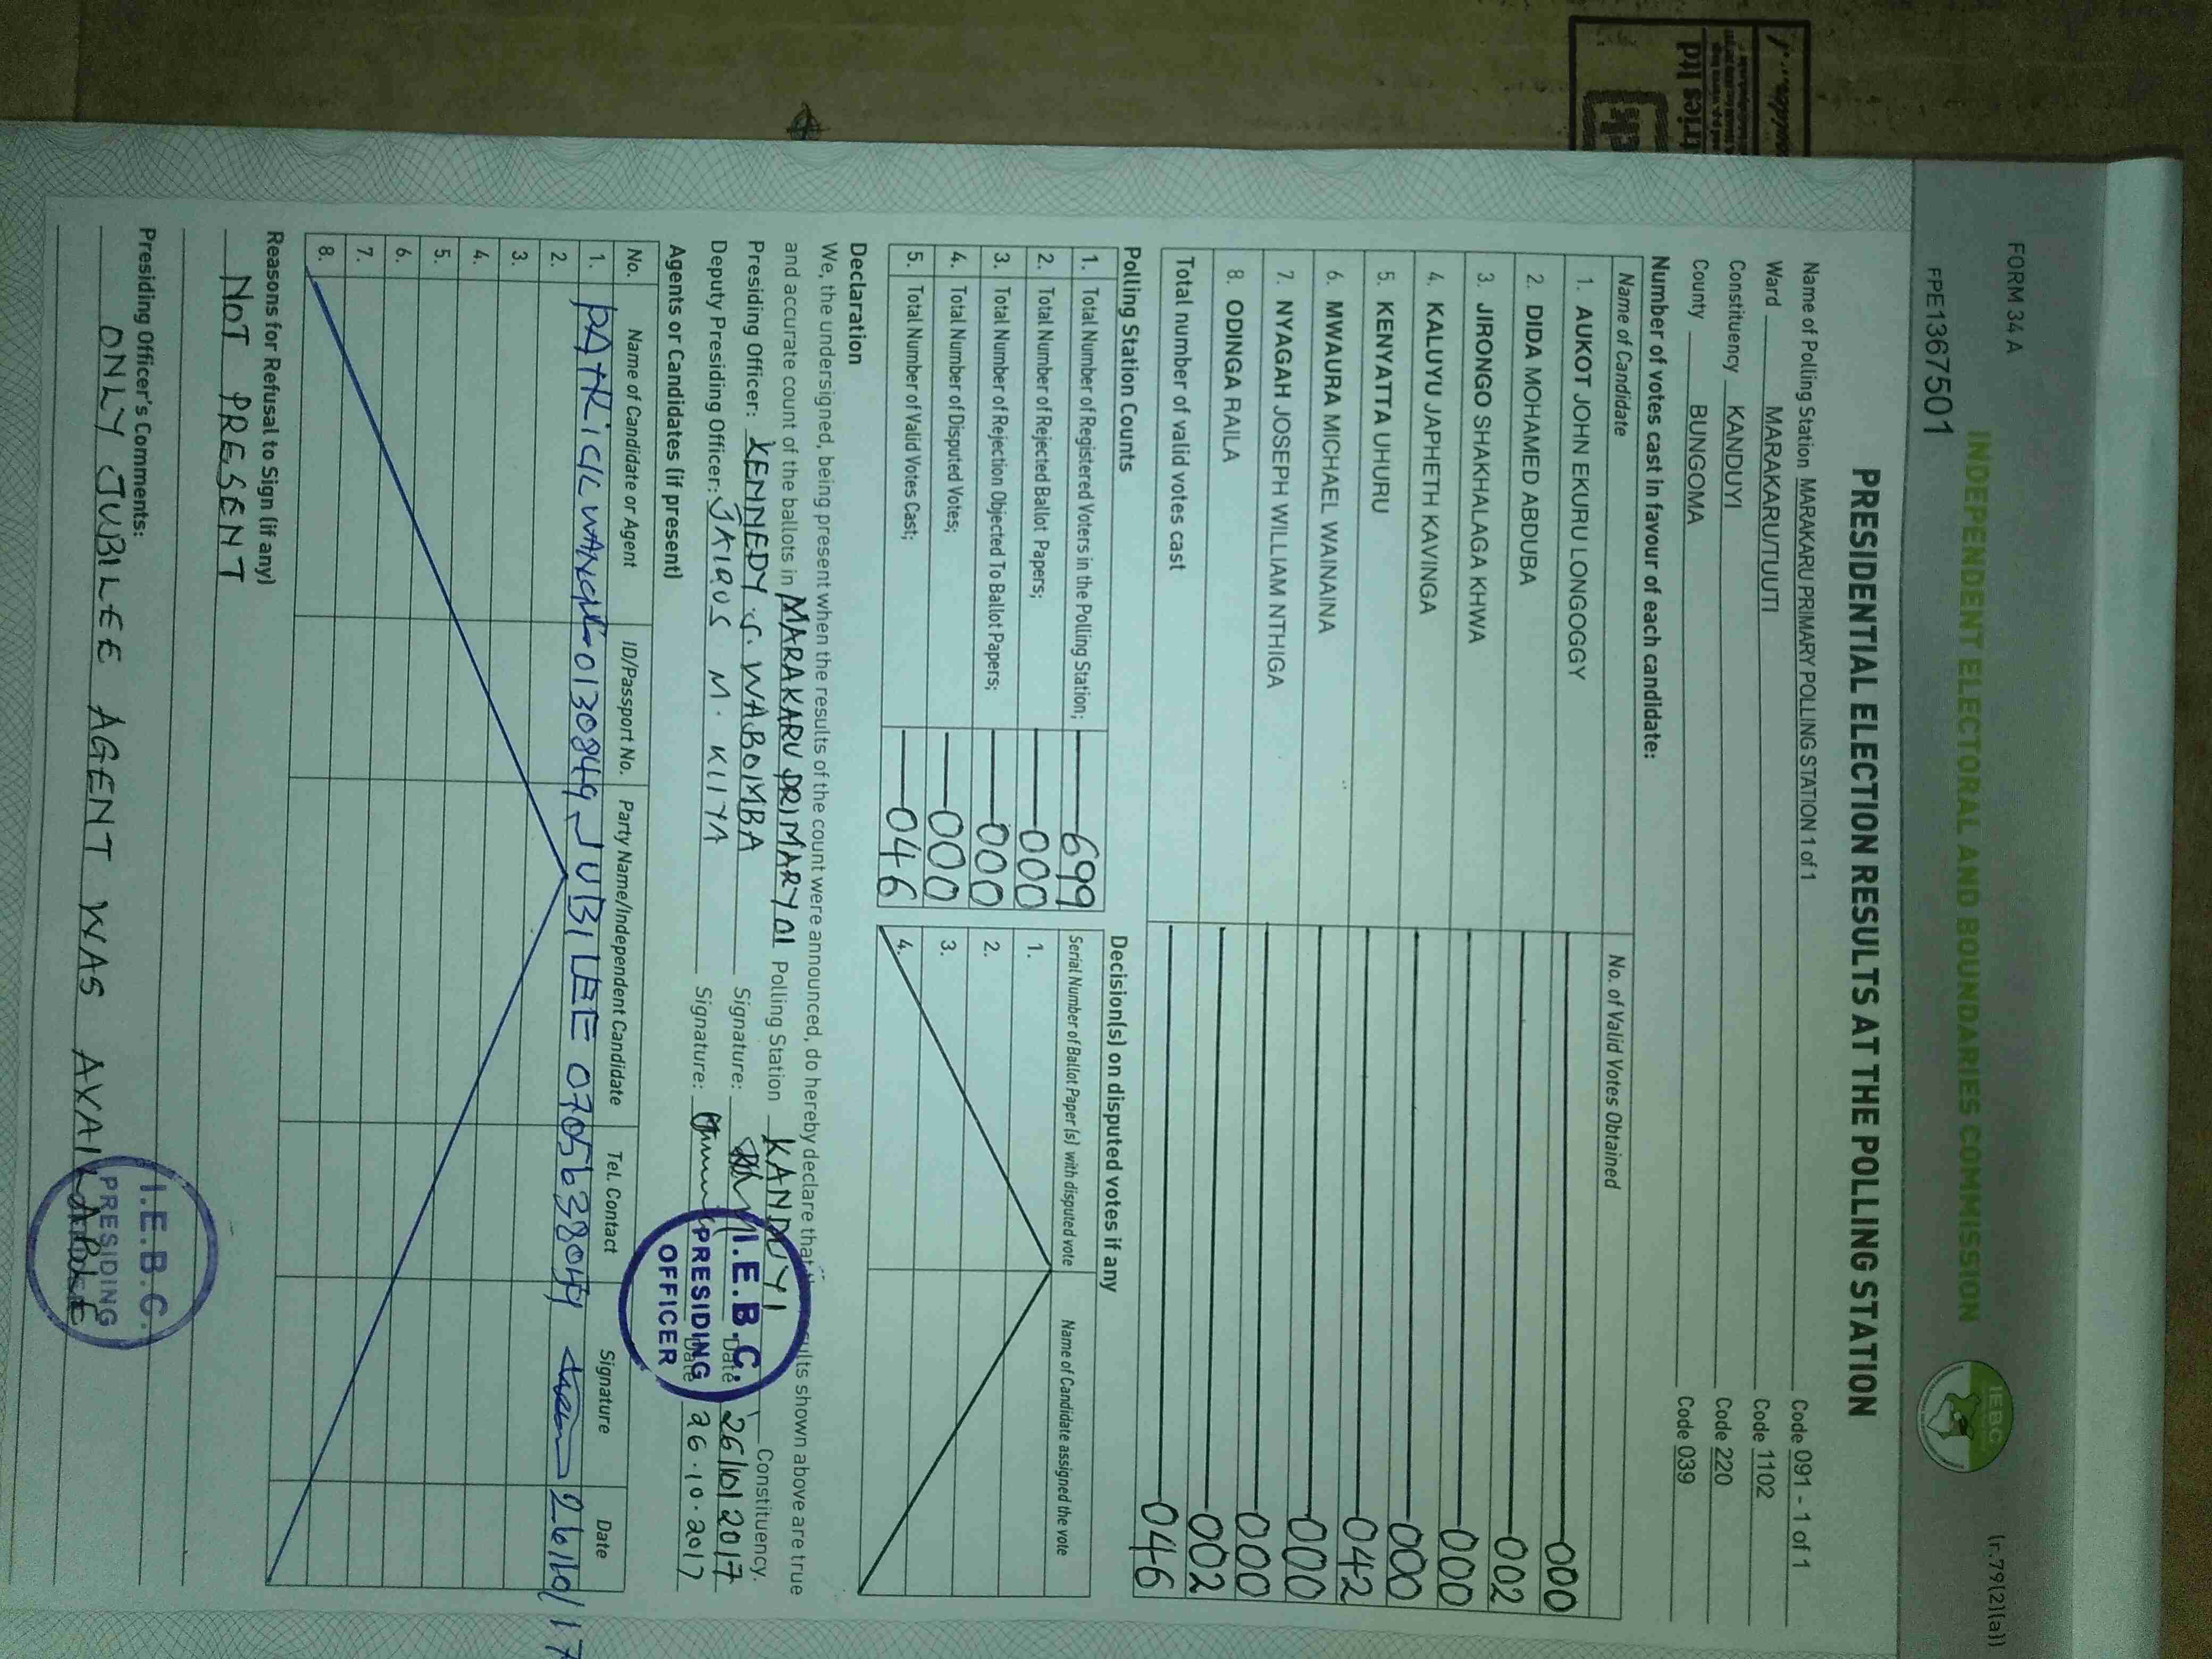 FORM 34 A
(r.79(2)(a))
FPE1367501
INDEPENDENT ELECTORAL AND BOUNDARIES COMMISSION
IEBC
PRESIDENTIAL ELECTION RESULTS AT THE POLLING STATION
Name of Polling Station MARAKARU PRIMARY POLLING STATION 1 of 1 Code 091 - 1 of 1
Ward MARAKARU/TUUTI Code 1102
Constituency KANDUYI Code 220
County BUNGOMA Code 039
Number of votes cast in favour of each candidate:
Name of Candidate No. of Valid Votes Obtained
1. AUKOT JOHN EKURU LONGOGGY 000
2. DIDA MOHAMED ABDUBA 002
3. JIRONGO SHAKHALAGA KHWA 000
4. KALUYU JAPHETH KAVINGA 000
5. KENYATTA UHURU 042
6. MWAURA MICHAEL WAINAINA 000
7. NYAGAH JOSEPH WILLIAM NTHIGA 000
8. ODINGA RAILA 002
Total number of valid votes cast 046
Polling Station Counts
1. Total Number of Registered Voters in the Polling Station; 699
2. Total Number of Rejected Ballot Papers; 000
3. Total Number of Rejection Objected To Ballot Papers; 000
4. Total Number of Disputed Votes; 000
5. Total Number of Valid Votes Cast; 046
Decision(s) on disputed votes if any
Serial Number of Ballot Paper (s) with disputed vote Name of Candidate assigned the vote
1.
2.
3.
4.
Declaration
We, the undersigned, being present when the results of the count were announced, do hereby declare that the results shown above are true
and accurate count of the ballots in MARAKARU PRIMARY 01 Polling Station KANDUYI Constituency.
Presiding Officer: KENNEDY .S. WABOMBA Signature: Date 26/10/2017
Deputy Presiding Officer: JAIRUS M. KIIYA Signature: Date 26.10.2017
I.E.B.C.
PRESIDING
OFFICER
Agents or Candidates (if present)
No. Name of Candidate or Agent ID/Passport No. Party Name/Independent Candidate Tel. Contact Signature Date
1. PATRICK 01308449 JUBILEE 0705638044 26/10/17
2.
3.
4.
5.
6.
7.
8.
Reasons for Refusal to Sign (if any)
NOT PRESENT
Presiding Officer's Comments:
ONLY JUBILEE AGENT WAS AVAILABLE
I.E.B.C.
PRESIDING